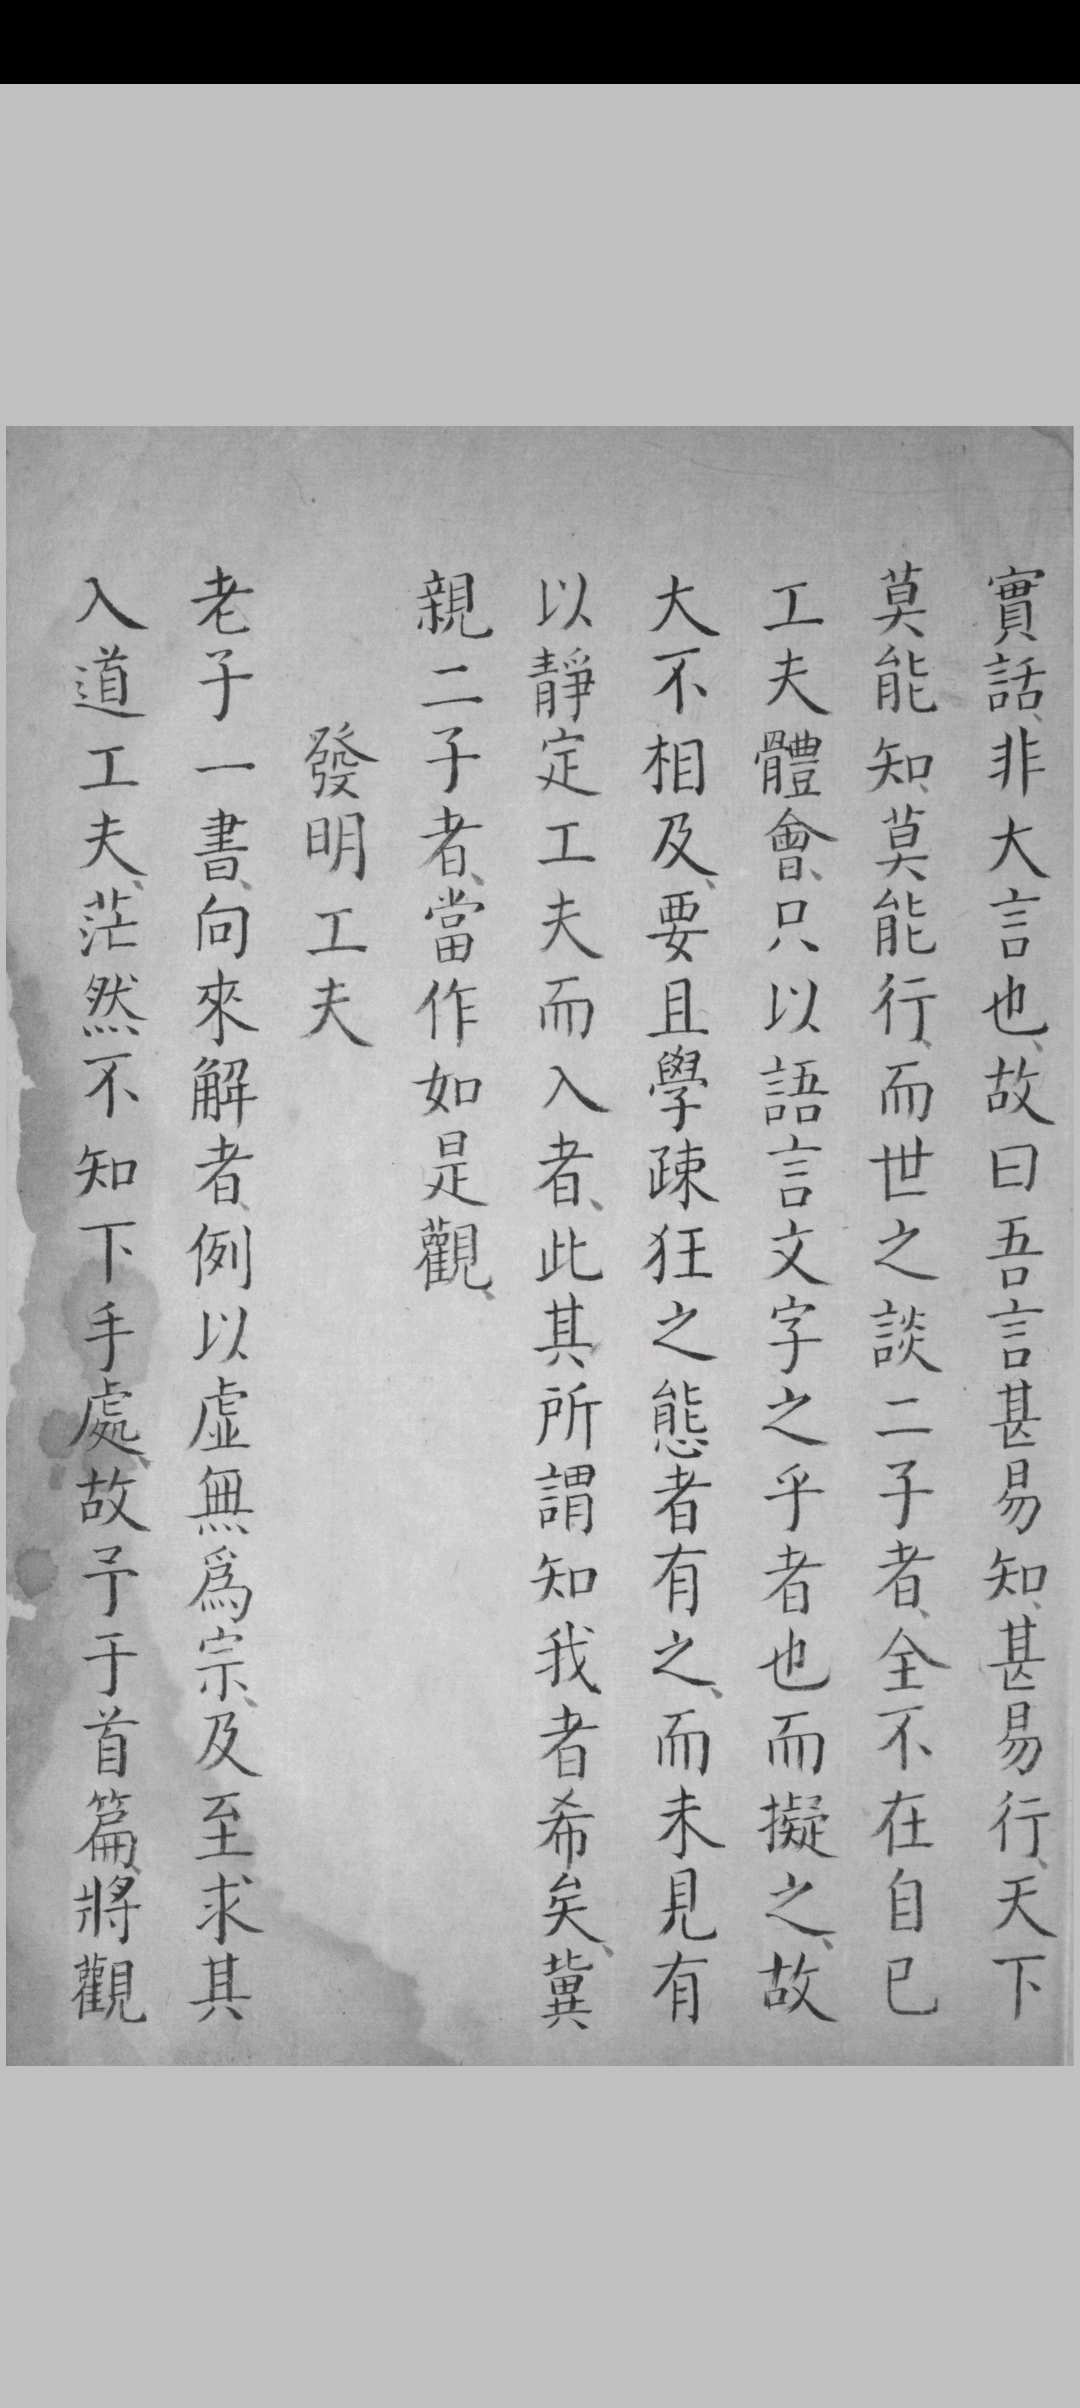 實話、非大言也、故曰吾言甚易知、甚易行、天下
莫能知、莫能行、而世之談二子者、全不在自己
工夫體會、只以語言文字之乎者也而擬之、故
大不相及、要且學疎狂之態者有之、而未見有
以靜定工夫而入者、此其所謂知我者希矣、冀
親二子者、當作如是觀、
發明工夫
老子一書、向來解者、例以虛無爲宗、及至求其
入道工夫、茫然不知下手處、故予于首篇、將觀